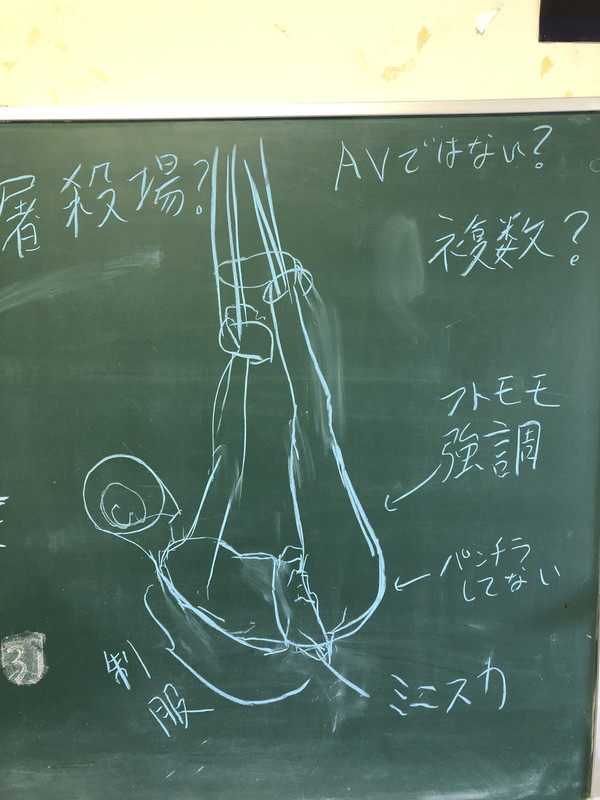 屠殺場?
AVではない?
複数?
フトモモ
強調
パンチラ
してない
制
服
ミニスカ